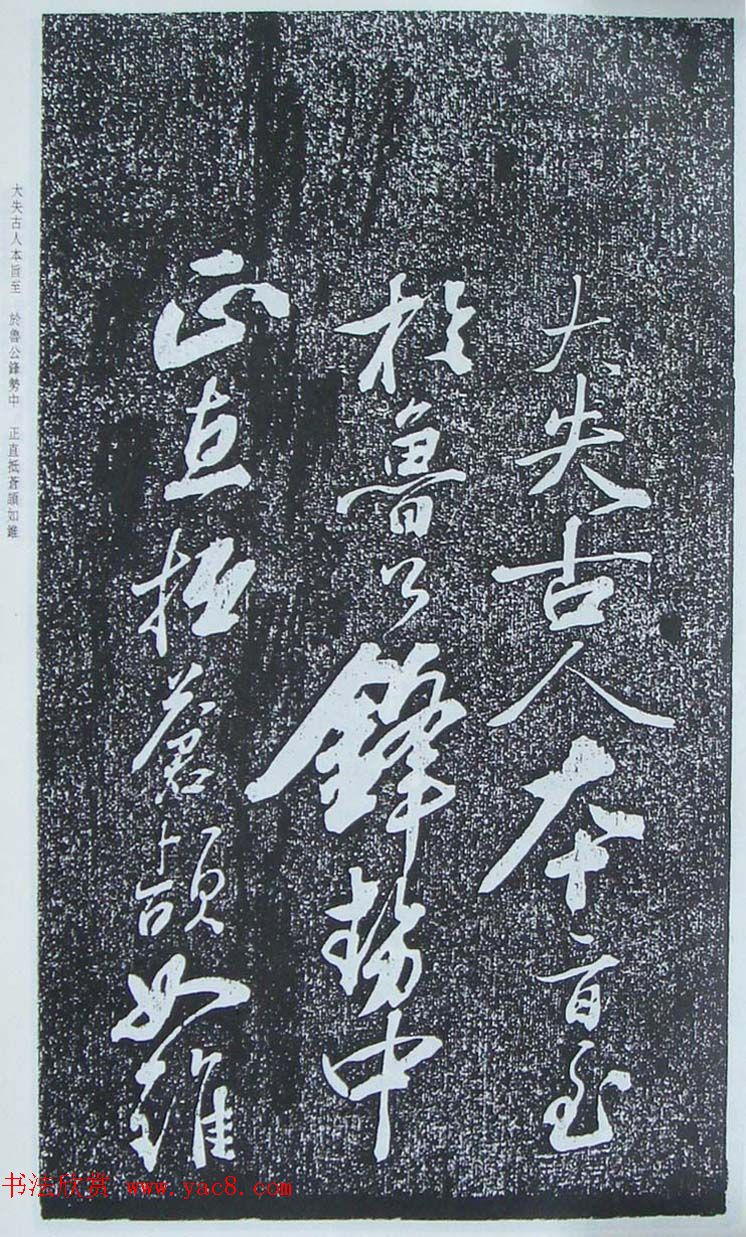 大失古人本旨至
於魯公鋒勢中
正直抵蒼頡如錐
大失古人本旨至 於魯公鋒勢中 正直抵蒼頭如錐
书法欣赏 www.yac8.com